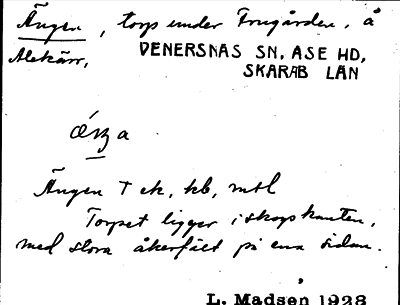 Ängen, torp under Frugården, å
Alekärr,
VENERSNÄS SN, ÅSE HD,
SKARAB LÄN
a
Ängen T ek, kb, mtl
Torpet ligger i skogskanten,
med stora åkerfält på ena sidan.
L. Madsen 1928